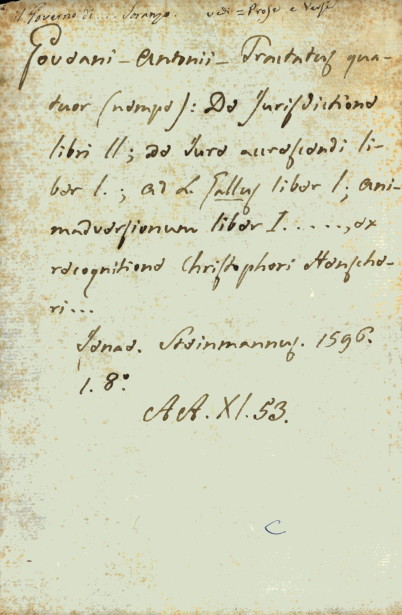 il Governo di ... Soranzo. vedi = Prose e Versi
Goudani - Antonii - Tractatus qua-
tuor (nempe): De Jurisdictione
libri II; de Jure accrescendi li-
ber I.; ad L. Gallus liber I; ani-
madversionum liber I......, ex
recognitione Christophori Henscha-
ri...
Jenae. Steinmannus. 1596.
1. 8°.
AA. XI. 53.
C